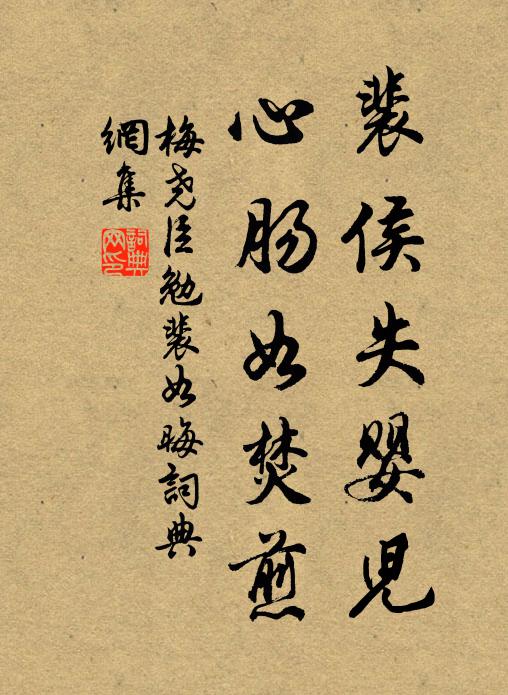 裴侯失嬰児
心肠如焚煎
梅尧臣勉裴如晦詞典
網集
詞典
网印